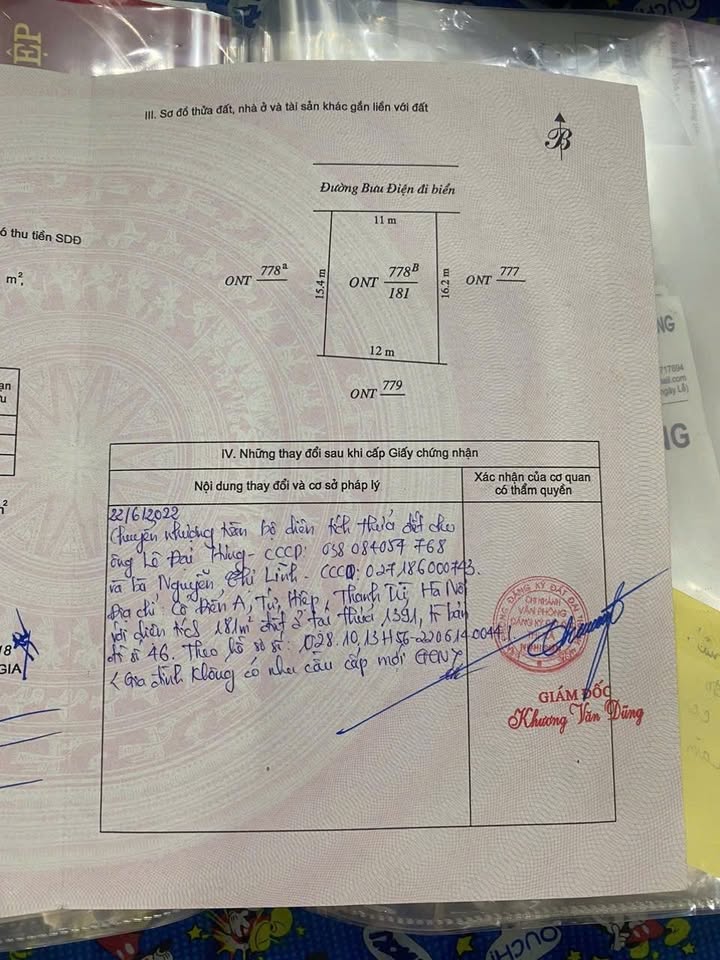 ỆP
III. Sơ đồ thửa đất, nhà ở và tài sản khác gắn liền với đất
B
Đường Bưu Điện đi biển
11 m
ó thu tiền SDĐ
m²,
ONT 778ª
15.4 m
ONT 778ᴮ
181
16.2 m
ONT 777
12 m
ONT 779
IV. Những thay đổi sau khi cấp Giấy chứng nhận
Nội dung thay đổi và cơ sở pháp lý
Xác nhận của cơ quan
có thẩm quyền
22/6/2022
Chuyển nhượng toàn bộ diện tích thửa đất cho
ông Lê Đại Hùng - CCCD: 038 084054 768
và bà Nguyễn Chi Linh - CCCD: 027186000743.
Địa chỉ: Cổ Điển A, Tứ Hiệp, Thanh Trì, Hà Nội
với diện tích 181m² đất ở tại thửa 1391, tờ bản
đồ số 46. Theo hồ sơ số: 028.10.13.H56-220614-0044
< Gia đình không có nhu cầu cấp mới GCN>
CHI NHÁNH
VĂN PHÒNG
ĐĂNG KÝ ĐẤT ĐAI
GIÁM ĐỐC
Khương Văn Dũng
GIA
NG
717694
ail.com
ngày Lễ)
NG